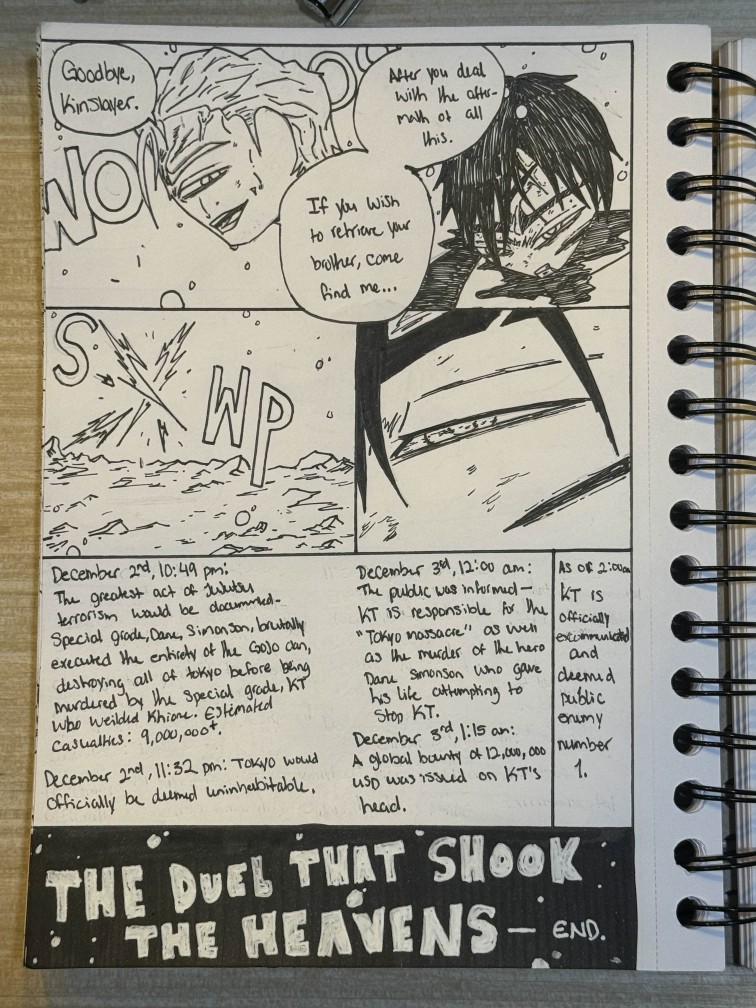 Goodbye,
Kinslayer.
After you deal
with the after-
math of all
this.
If you wish
to retrieve your
brother, come
find me...
WO
S
WP
December 2nd, 10:49 pm:
The greatest act of Jujutsu
terrorism would be documented-
Special grade, Dane, Simonson, brutally
executed the entirety of the Gojo clan,
destroying all of tokyo before being
murdered by the special grade, KT
who weilded Khione. Estimated
Casualties: 9,000,000+.
December 2nd, 11:32 pm: Tokyo would
officially be deemed uninhabitable.
December 3rd, 12:00 am:
The public was informed-
KT is responsible for the
"Tokyo massacre" as well
as the murder of the hero
Dane Simonson who gave
his life attempting to
stop KT.
December 3rd, 1:15 am:
A global bounty of 12,000,000
USD was issued on KT's
head.
As of 2:00am
KT is
officially
excommunicated
and
deemed
public
enemy
number
1.
THE DUEL THAT SHOOK
THE HEAVENS — END.